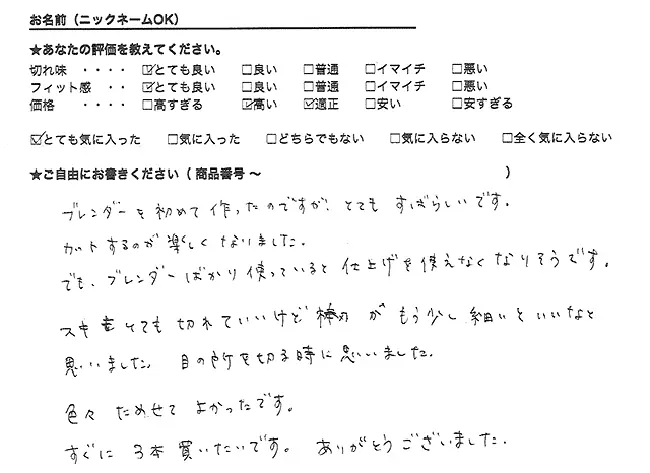 お名前（ニックネームOK）
★あなたの評価を教えてください。
切れ味 ・・・・ ☑とても良い □良い □普通 □イマイチ □悪い
フィット感 ・・ ☑とても良い □良い □普通 □イマイチ □悪い
価格 ・・・・ □高すぎる ☑高い ☑適正 □安い □安すぎる
☑とても気に入った □気に入った □どちらでもない □気に入らない □全く気に入らない
★ご自由にお書きください（商品番号～ ）
ブレンダーを初めて作ったのですが、とてもすばらしいです。
カットするのが楽しくなりました。
でも、ブレンダーばかり使っていると仕上げを使えなくなりそうです。
スキもとても切れていいけど棒刃がもう少し細いといいなと
思いました。目の所を切る時に思いました。
色々ためせてよかったです。
すぐに3本買いたいです。ありがとうございました。